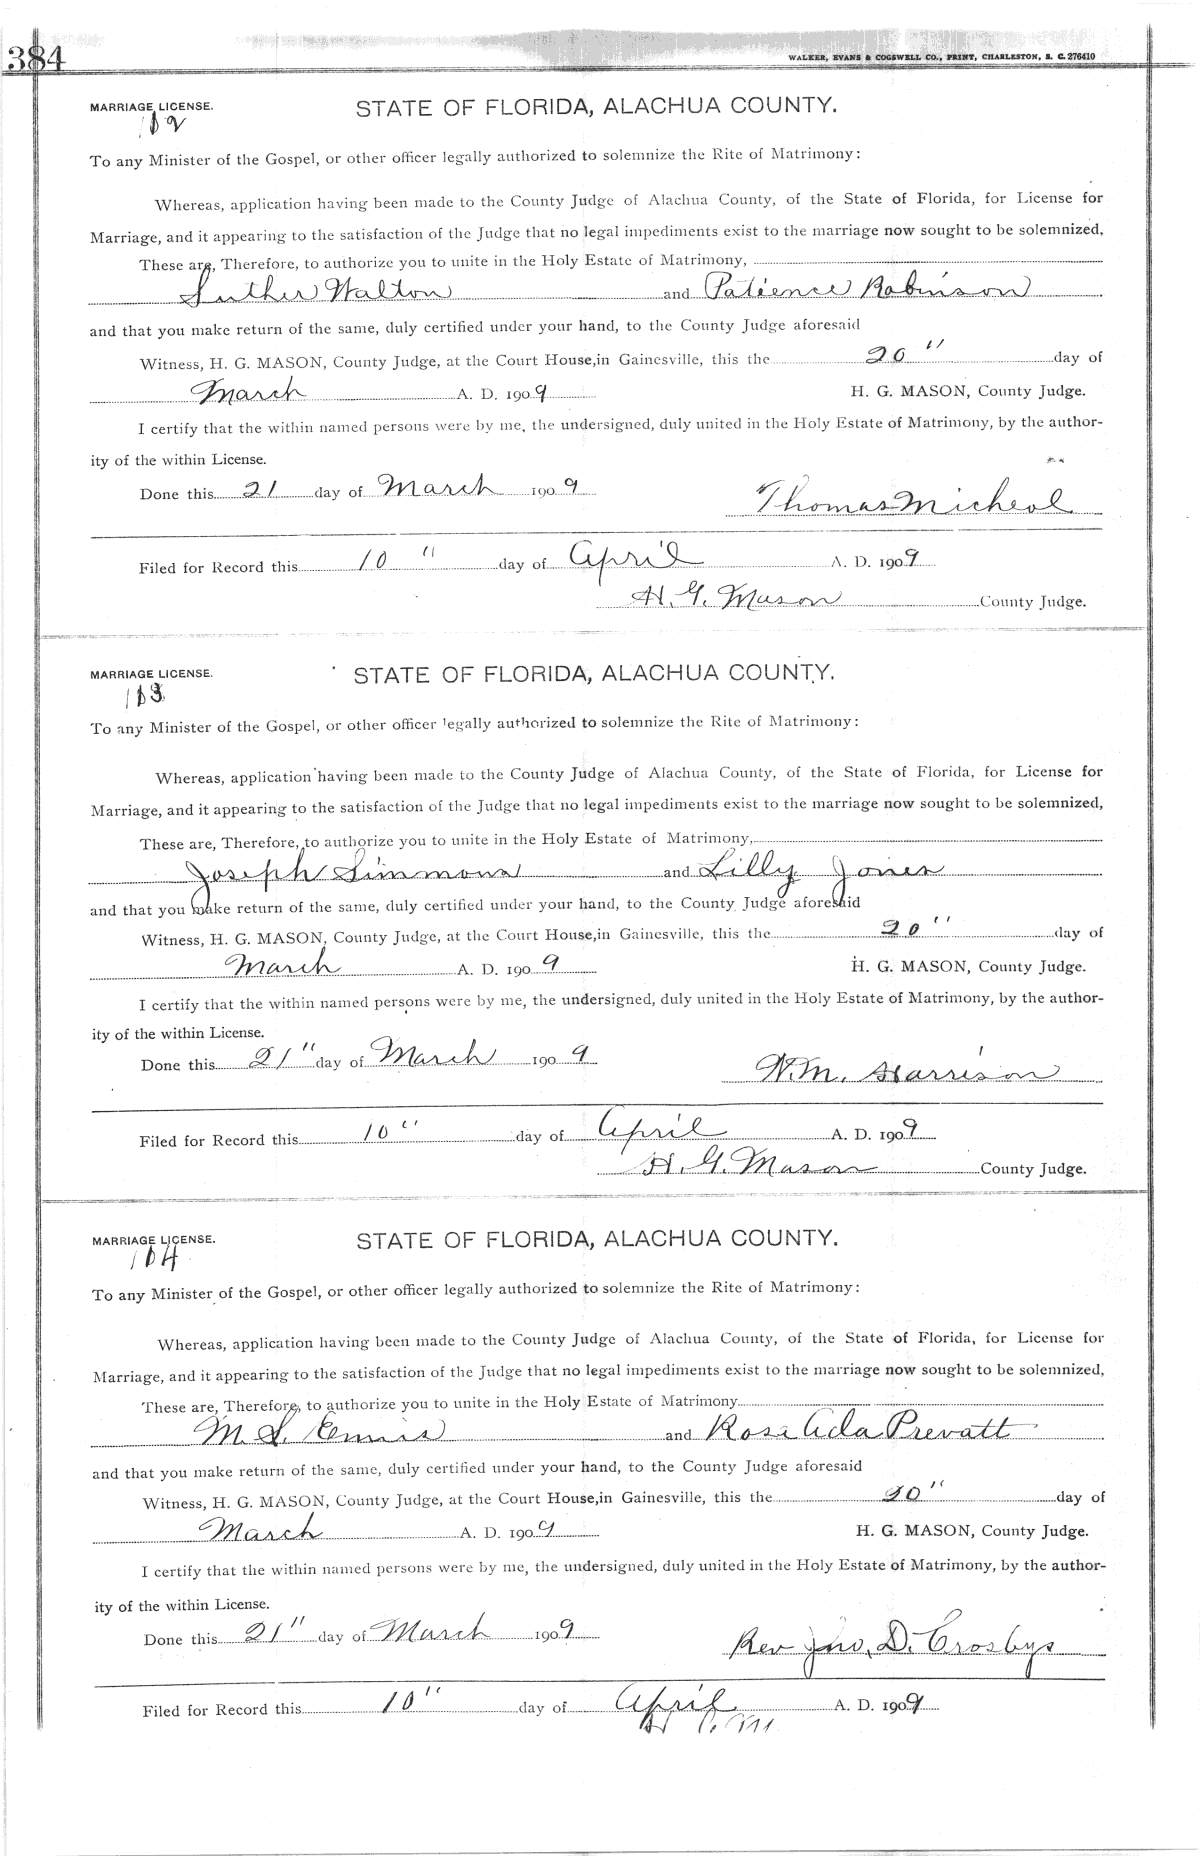 384
WALKER, EVANS & COGSWELL CO., PRINT, CHARLESTON, S. C. 276410
MARRIAGE LICENSE. STATE OF FLORIDA, ALACHUA COUNTY.
102
To any Minister of the Gospel, or other officer legally authorized to solemnize the Rite of Matrimony:
Whereas, application having been made to the County Judge of Alachua County, of the State of Florida, for License for
Marriage, and it appearing to the satisfaction of the Judge that no legal impediments exist to the marriage now sought to be solemnized,
These are, Therefore, to authorize you to unite in the Holy Estate of Matrimony,
Luther Walton and Patience Robinson
and that you make return of the same, duly certified under your hand, to the County Judge aforesaid
Witness, H. G. MASON, County Judge, at the Court House, in Gainesville, this the 20" day of
March A. D. 1909 H. G. MASON, County Judge.
I certify that the within named persons were by me, the undersigned, duly united in the Holy Estate of Matrimony, by the author-
ity of the within License.
Done this 21 day of March 1909
Thomas Micheal
Filed for Record this 10" day of April A. D. 1909
H. G. Mason County Judge.
MARRIAGE LICENSE. STATE OF FLORIDA, ALACHUA COUNTY.
103
To any Minister of the Gospel, or other officer legally authorized to solemnize the Rite of Matrimony:
Whereas, application having been made to the County Judge of Alachua County, of the State of Florida, for License for
Marriage, and it appearing to the satisfaction of the Judge that no legal impediments exist to the marriage now sought to be solemnized,
These are, Therefore, to authorize you to unite in the Holy Estate of Matrimony,
Joseph Simmons and Lilly Jones
and that you make return of the same, duly certified under your hand, to the County Judge aforesaid
Witness, H. G. MASON, County Judge, at the Court House, in Gainesville, this the 20" day of
March A. D. 1909 H. G. MASON, County Judge.
I certify that the within named persons were by me, the undersigned, duly united in the Holy Estate of Matrimony, by the author-
ity of the within License.
Done this 21" day of March 1909
W.M. Harrison
Filed for Record this 10" day of April A. D. 1909
H. G. Mason County Judge.
MARRIAGE LICENSE. STATE OF FLORIDA, ALACHUA COUNTY.
104
To any Minister of the Gospel, or other officer legally authorized to solemnize the Rite of Matrimony:
Whereas, application having been made to the County Judge of Alachua County, of the State of Florida, for License for
Marriage, and it appearing to the satisfaction of the Judge that no legal impediments exist to the marriage now sought to be solemnized,
These are, Therefore, to authorize you to unite in the Holy Estate of Matrimony
M. S. Ennis and Rosa Ada Prevatt
and that you make return of the same, duly certified under your hand, to the County Judge aforesaid
Witness, H. G. MASON, County Judge, at the Court House, in Gainesville, this the 20" day of
March A. D. 1909 H. G. MASON, County Judge.
I certify that the within named persons were by me, the undersigned, duly united in the Holy Estate of Matrimony, by the author-
ity of the within License.
Done this 21" day of March 1909
Rev Jno. D. Crosbys
Filed for Record this 10" day of April A. D. 1909